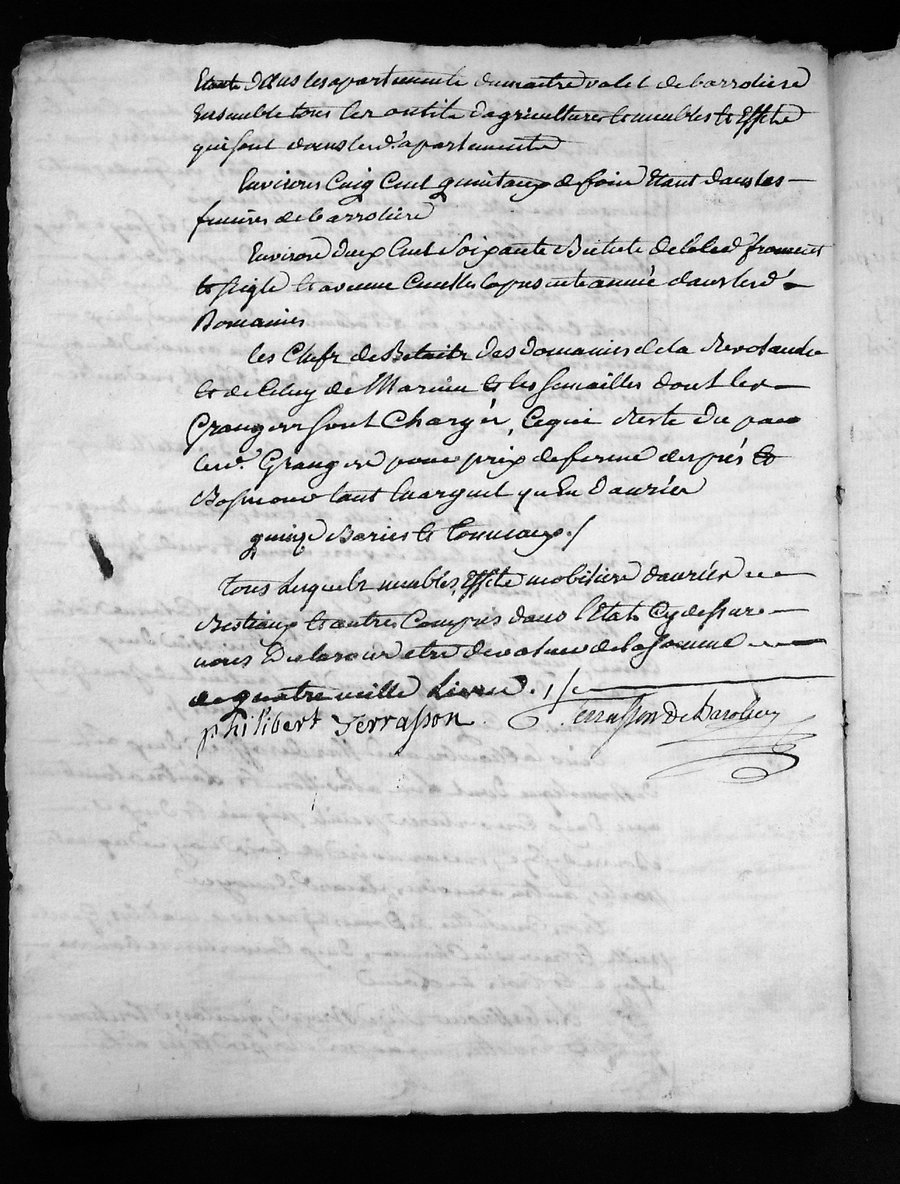 Etant dans les apartements du maitre valet de barroliere
Ensemble tous les outils d'agriculture & meubles & Effets
qui sont dans les d.ts apartements
Environs Cinq Cent quintaux de foin Etant dans les
fenieres de barroliere
Environ deux Cent Soixante Bichets de bled froment
& seigle & avenne Cueillis la presente année dans lesd.ts
Domaines
les Chefs de Betails des domaines de la Revolanche
& de Celuy de & les semailles dont les
Grangers sont Chargés, Ce qui Reste du par
les Grangers pour prix de ferme des prés &
tant En argent qu'En danrées
quinze Baries & Tonneaux ./
Tous Lesquels meubles, Effets mobiliers danrées
Bestiaux & autres Compris dans l'Etat Cy dessus
nous Declarons etre de valeur de la somme
de quatre mille Livres . //
philibert Terrasson. Terrasson De Barolliere